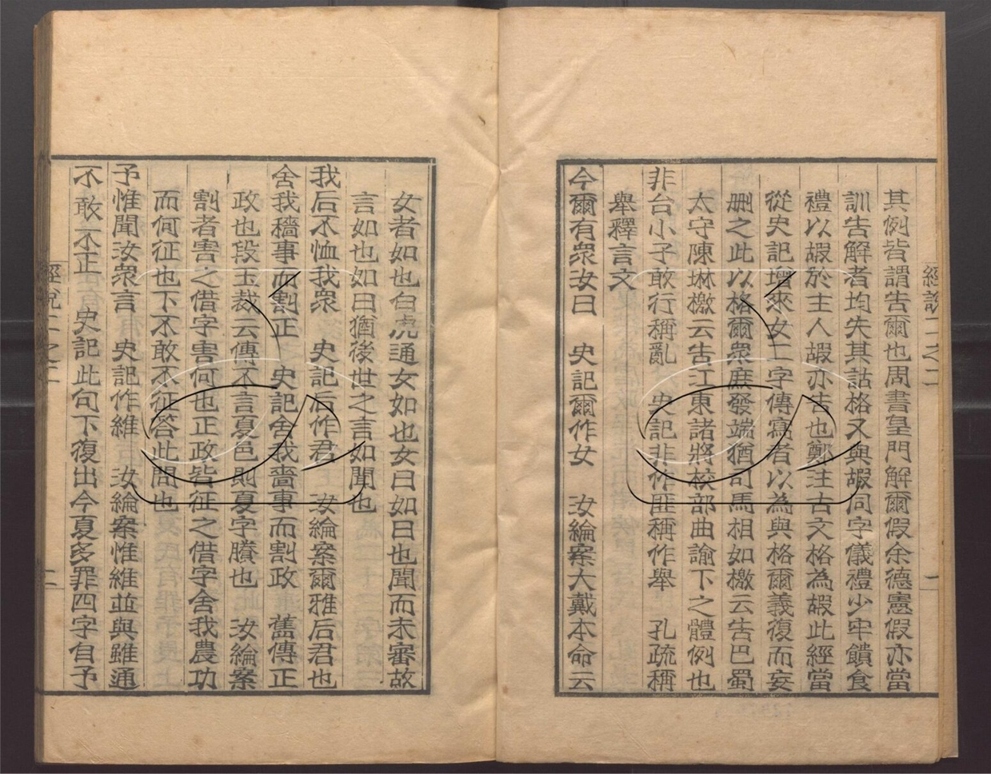 其例皆謂告爾也周書皇門解爾假余德憲假亦當
訓告解者均失其詁格又與嘏同字儀禮少牢饋食
禮以嘏於主人嘏亦告也鄭注古文格為嘏此經當
從史記增來女二字傳寫者以為與格爾義復而妄
刪之此以格爾衆庶發端猶司馬相如檄云告巴蜀
太守陳琳檄云告江東諸將校部曲諭下之體例也
非台小子敢行稱亂 史記非作匪稱作舉 孔疏稱
舉釋言文
今爾有衆汝曰 史記爾作女 汝綸案大戴本命云
女者如也白虎通女如也女曰如曰也聞而未審故
言如也如曰猶後世之言如聞也
我后不恤我衆 史記后作君 汝綸案爾雅后君也
舍我穡事而割正 史記舍我嗇事而割政 舊傳正
政也段玉裁云傳不言夏邑則夏字賸也 汝綸案
割者害之借字害何也正政皆征之借字舍我農功
而何征也下不敢不征答此問也
予惟聞汝衆言 史記作維 汝綸案惟維並與雖通
不敢不正 史記此句下復出今夏多罪四字自予
經說二之二
一
經說二之二
二